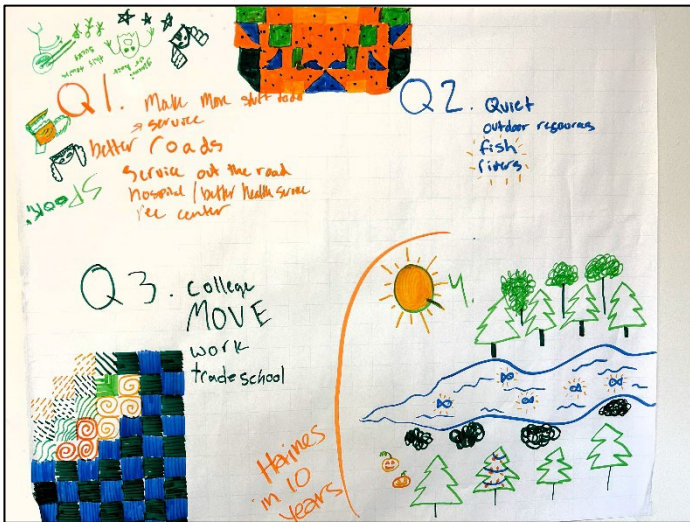 Q1. Make more stuff to do
→ service
better roads
service out the road
hospital / better health service
rec center
SPOOKY
Q2. Quiet
outdoor resources
fish
rivers
Q3. college
MOVE
work
trade school
4.
Haines
in 10
years